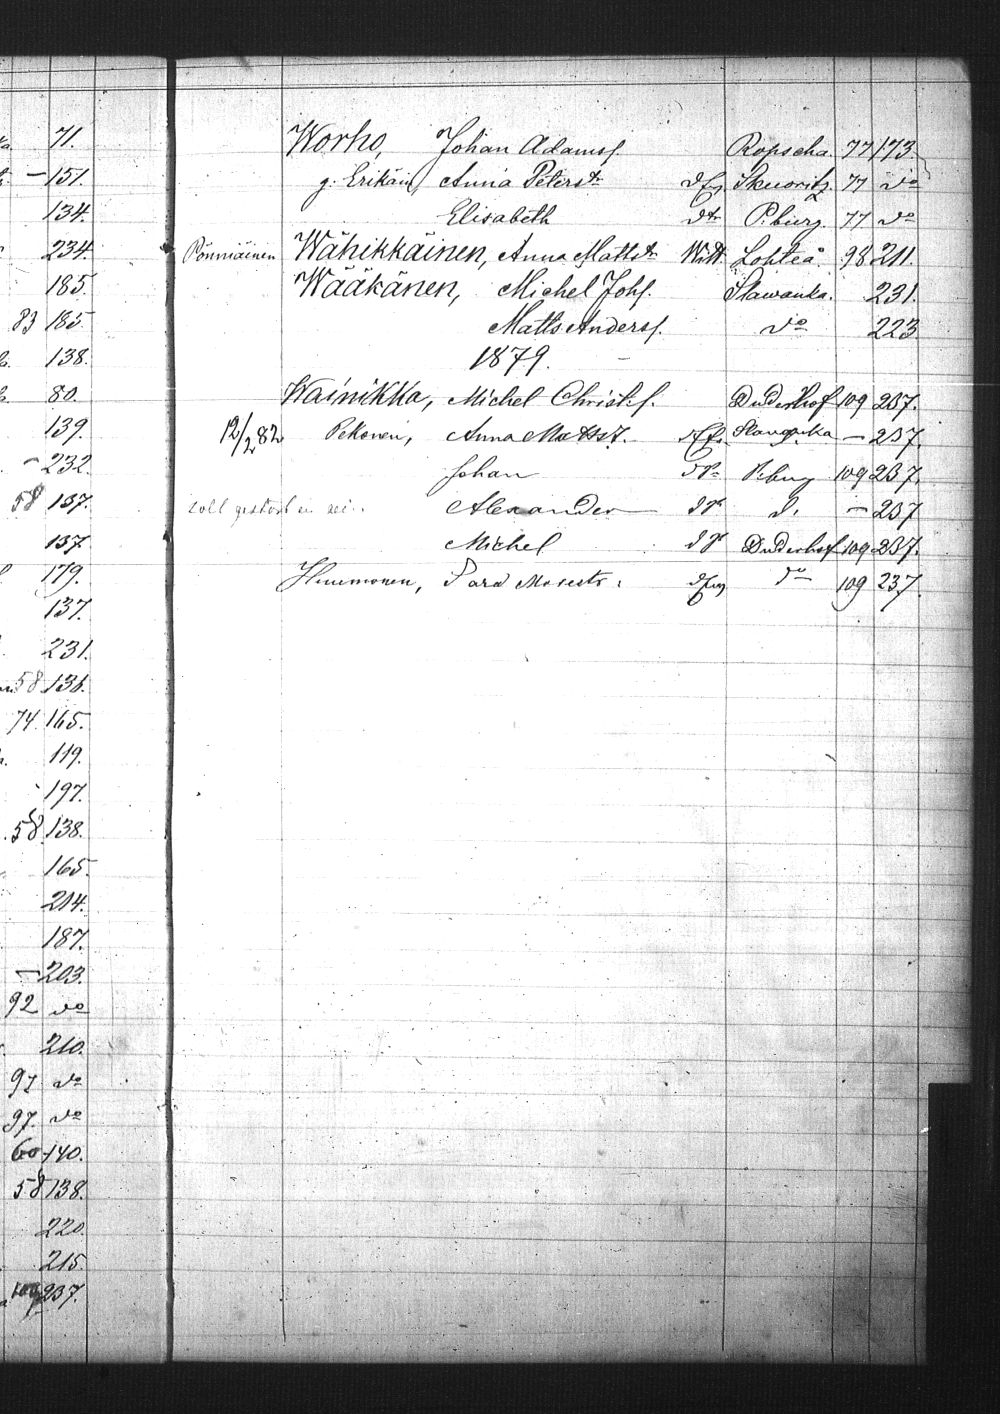 71.
151.
134.
234.
185.
83 185.
138.
80.
139.
232.
58 137.
137.
179.
137.
231.
58 131.
74. 165.
119.
197.
58 138.
165.
214.
187.
203.
92 do
210.
97 do
97. do
60 140.
58 138.
220.
215.
109 237.
Worho, Johan Adamsf. Ropscha. 77 173.
g. Erikäin Anna Petersdr Skuoritz 77 do
Elisabeth dtr P.burg. 77 do
Pönniäinen Wähikkäinen, Anna Mattsdr Witt. Lohteå 98 211.
Wääkänen, Michel Johf. Slawanka. 231.
Matts Andersf. do 223.
1879.
Wainikka, Michel Christf. Duderhof 109 237.
12/2 82 Pekonen, Anna Mattsd. Slawanka — 237.
Johan P.burg 109 237.
Alexander d. — 237
Michel Duderhof 109 237.
Huumonen, Mosesdr do 109 237.